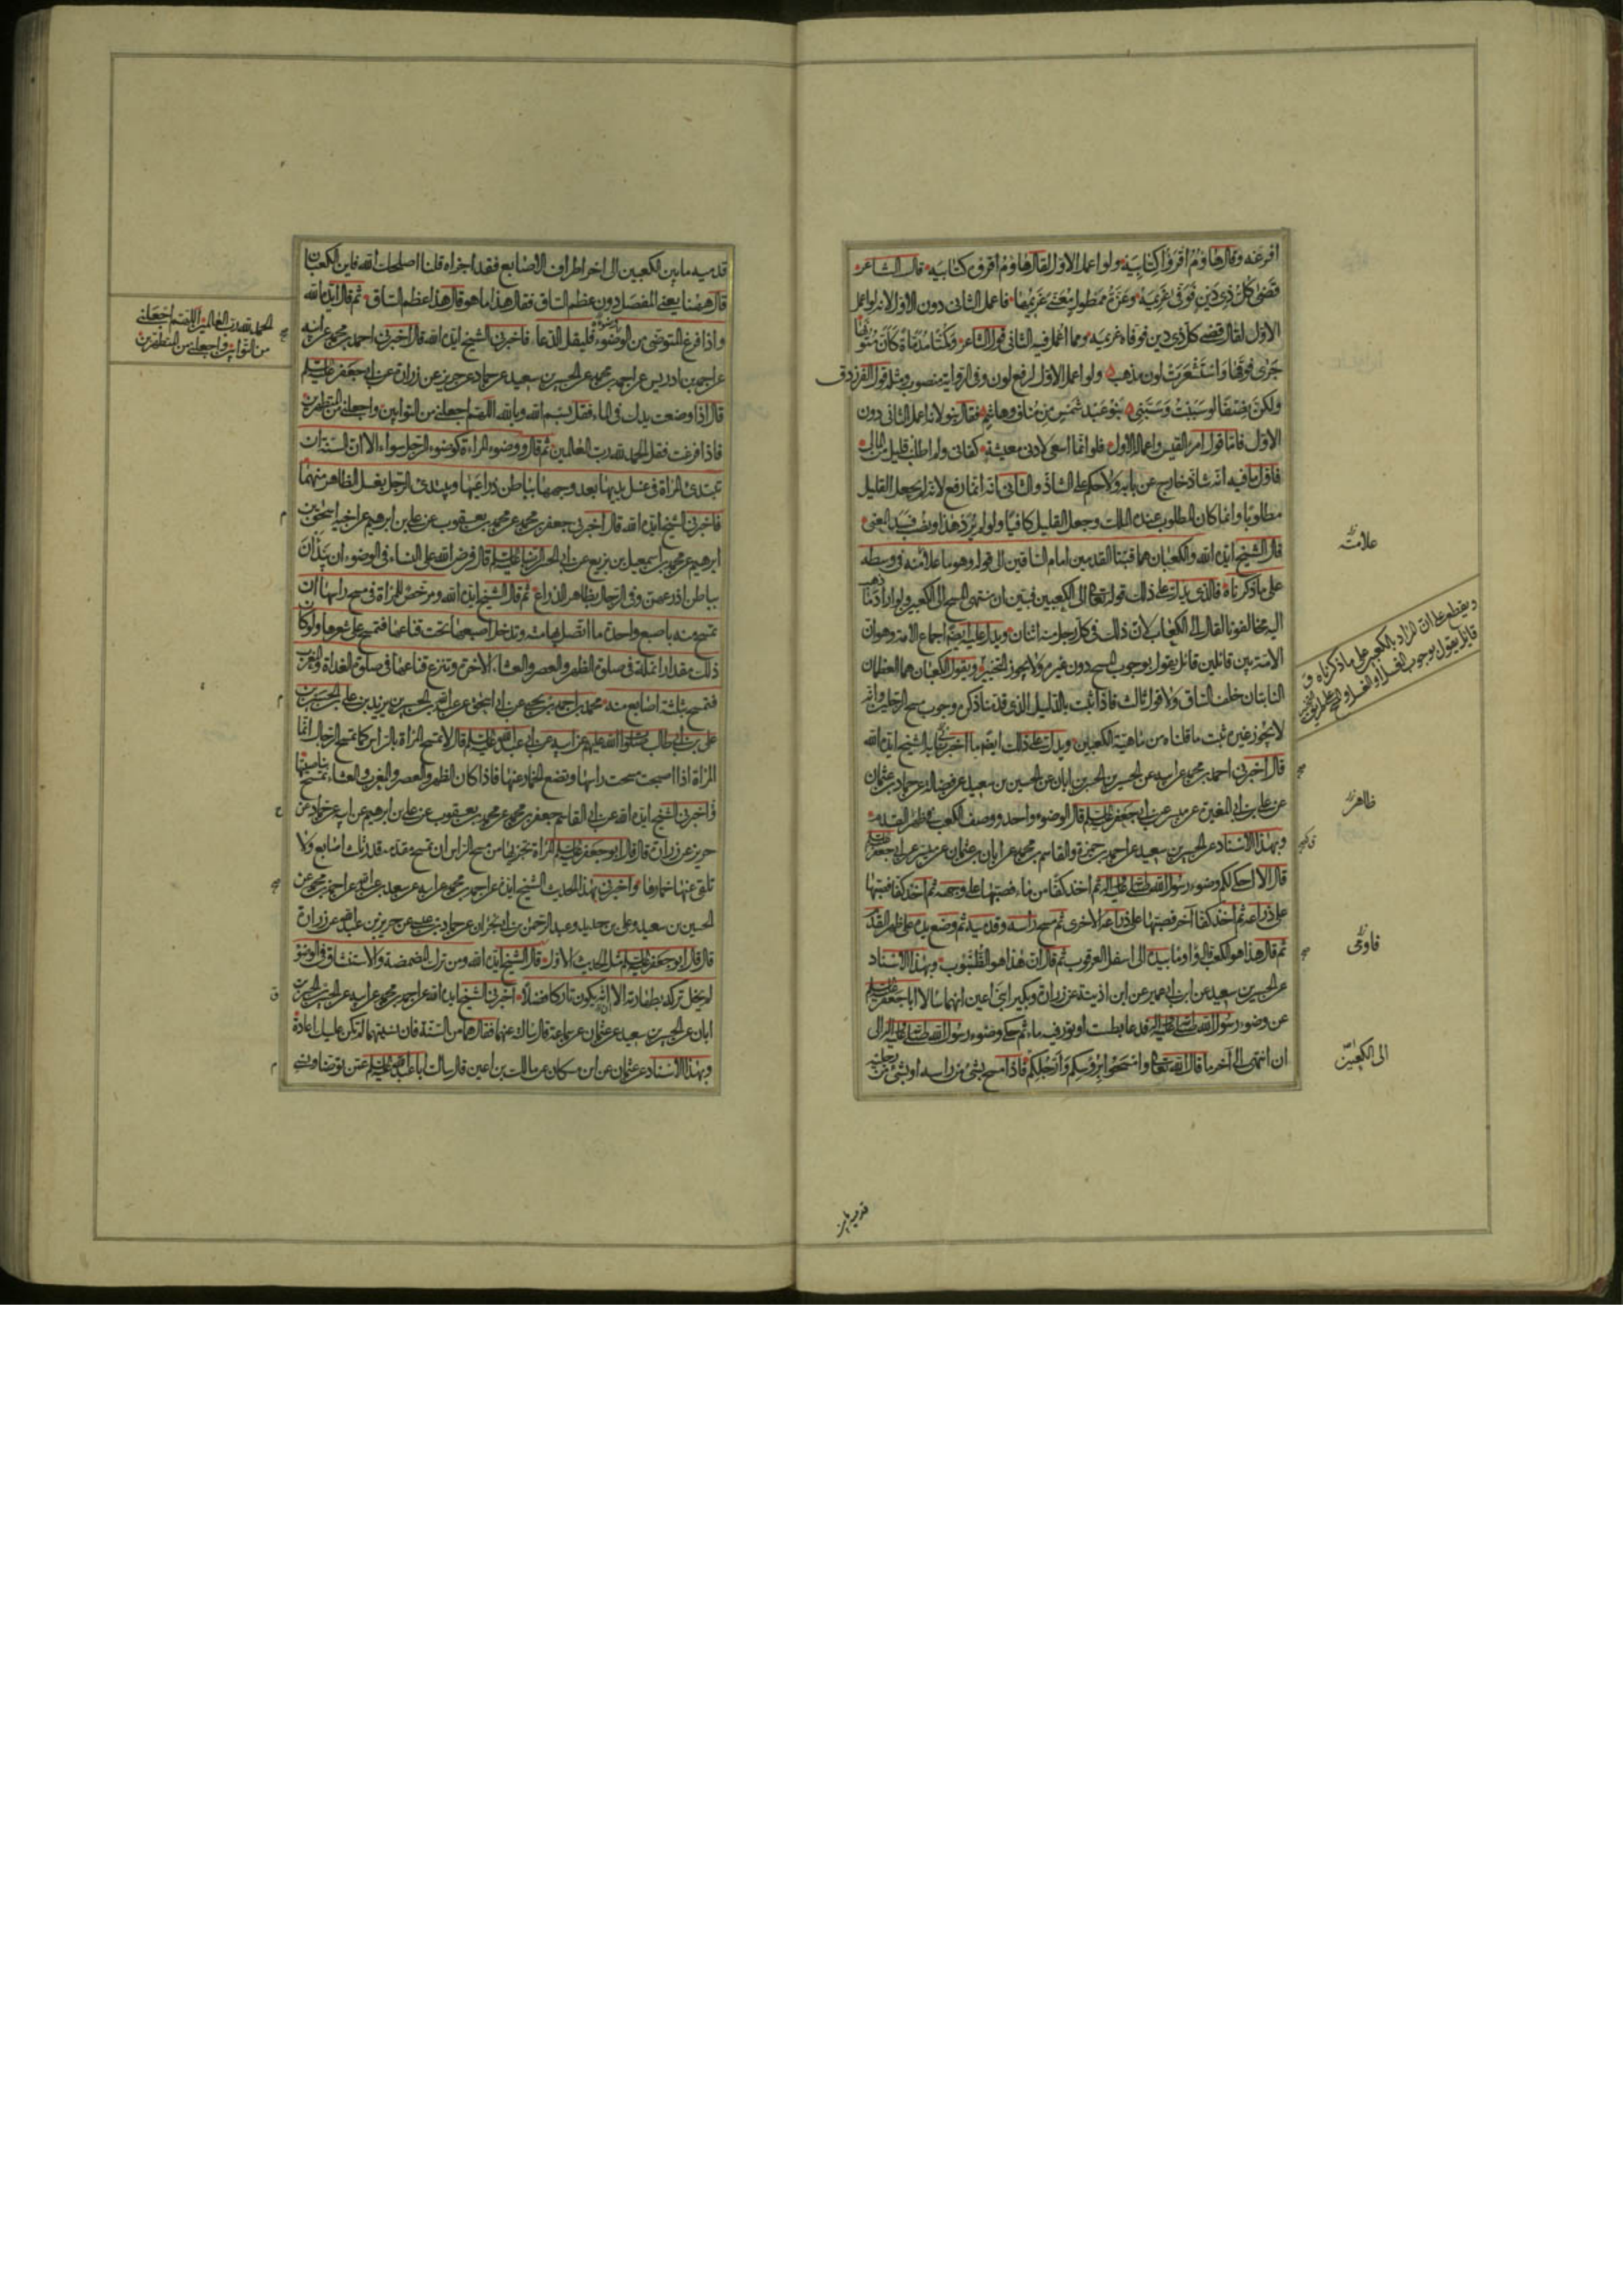 افرغه وقال هاؤم اقرؤا كتابيه ولو اعمل الاول لقال هاؤم اقرؤه كتابيه قال الشاعر
قضى كل ذى دين فوفى غريمه وعزة ممطول معنى غريمها فاعمل الثانى دون الاول لانه لو اعمل
الاول لقال قضى كل ذى دين فوفاه غريمه ومما اعمل فيه الثانى قول الشاعر وكمتا مدماة كأن متونها
جرى فوقها واستشعرت لون مذهب ولو اعمل الاول لرفع لون وفى الرواية منصوب ومثله قول الفرزدق
ولكن نصفا لو سببت وسبنى بنو عبد شمس من مناف وهاشم فقال بنو لانه اعمل الثانى دون
الاول فاما قول امرئ القيس واعماله الاول فلو انما اسعى لادنى معيشة كفانى ولم اطلب قليل من المال
فاول ما فيه انه شاذ خارج عن بابه ولا حكم على الشاذ والثانى انه انما رفع لانه لم يجعل القليل
مطلوبا وانما كان المطلوب عنده الملك وجعل القليل كافيا ولو لم يرد هذا ونصب فسد المعنى
قال الشيخ ايده الله والكعبان هما قبتا القدمين امام الساقين الى قوله وهو ما علا منه فى وسطه
على ما ذكرناه فالذى يدل على ذلك قوله تعالى الى الكعبين فبين ان منتهى المسح الى الكعبين ولو اراد ما ذهب
اليه مخالفونا لقال الى الكعاب لان ذلك فى كل رجل منه اثنان ويدل عليه ايضا اجماع الامة وهو ان
الامة بين قائلين قائل يقول بوجوب المسح دون غيره ولا يجوز التخيير ويقول الكعبان هما العظمان
النابتان خلف الساق ولا قول ثالث فاذا ثبت بالدليل الذى قدمنا ذكره وجوب مسح الرجلين وانه
لا يجوز غيره ثبت ما قلناه من ماهية الكعبين ويدل على ذلك ايضا ما اخبرنى به الشيخ ايده الله
قال اخبرنى احمد بن محمد عن ابيه عن الحسين بن الحسن بن ابان عن الحسين بن سعيد عن فضالة عن حماد بن عثمان
عن على بن ابى المغيرة عن ميسر عن ابى جعفر عليه السلام قال الوضوء واحد ووصف الكعب فى ظهر القدم
وبهذا الاسناد عن الحسين بن سعيد عن احمد بن حمزة والقاسم بن محمد عن ابان بن عثمان عن ميسر عن ابى جعفر عليه السلام
قال الا احكى لكم وضوء رسول الله صلى الله عليه وآله ثم اخذ كفا من ماء فصبها على وجهه ثم اخذ كفا فصبها
على ذراعه ثم اخذ كفا آخر فصبها على ذراعه الاخرى ثم مسح رأسه وقدميه ثم وضع يده على ظهر القدم
ثم قال هذا هو الكعب قال واومأ بيده الى اسفل العرقوب ثم قال ان هذا هو الظنبوب وبهذا الاسناد
عن الحسين بن سعيد عن ابن ابى عمير عن ابن اذينة عن زرارة وبكير ابنى اعين انهما سألا ابا جعفر عليه السلام
عن وضوء رسول الله صلى الله عليه وآله فدعا بطست او تور فيه ماء ثم حكى وضوء رسول الله صلى الله عليه وآله الى
ان انتهى الى آخر ما قال الله تعالى وامسحوا برؤسكم وارجلكم فاذا مسح بشئ من رأسه او بشئ من رجليه
علامة
ويقطع على ان المراد بالكعبين على ما ذكرناه و
قائل يقول بوجوب الغسل او الغسل و المسح على طريق التخيير
ظاهر
فاومى
الى الكعبين
قدميه ما بين
قدميه ما بين الكعبين الى اخر اطراف الاصابع فقد اجزاه قلنا اصلحك الله فاين الكعبان
قال ههنا يعنى المفصل دون عظم الساق فقال هذا ما هو قال هذا عظم الساق ثم قال ايده الله
واذا فرغ المتوضى من الوضوء فليقل الدعاء فاخبرنى الشيخ ايده الله قال اخبرنى احمد بن محمد عن ابيه
عن احمد بن ادريس عن احمد بن محمد عن الحسين بن سعيد عن حماد عن حريز عن زرارة عن ابى جعفر عليه السلام
قال اذا وضعت يدك فى الماء فقل بسم الله وبالله اللهم اجعلنى من التوابين واجعلنى من المتطهرين
فاذا فرغت فقل الحمد لله رب العالمين ثم قال ووضوء المراة كوضوء الرجل سواء الا ان السنة ان
تبتدئ المراة فى غسل يديها بعد وجهها بباطن ذراعيها ويبتدئ الرجل بغسل الظاهر منهما
فاخبرنى الشيخ ايده الله قال اخبرنى جعفر بن محمد عن محمد بن يعقوب عن على بن ابرهيم عن اخيه اسحق بن
ابرهيم عن محمد بن اسمعيل بن بزيع عن ابى الحسن الرضا عليه السلام قال فرض الله على النساء فى الوضوء ان يبدأن
بباطن اذرعهن وفى الرجال بظاهر الذراع ثم قال الشيخ ايده الله ومرخص للمراة فى مسح راسها ان
تمسح منه باصبع واحدة ما اتصل بهامته وتدخل اصبعها تحت قناعها فتمسح على شعرها ولو كان
ذلك مقدار انملة فى صلوة الظهر والعصر والعشاء الاخرة وتنزع قناعها فى صلوة الغداة والمغرب
فتمسح بثلث اصابع منه محمد بن احمد بن يحيى عن ابى اسحق عن عبد الله بن الحسين بن زيد بن على بن الحسين بن
على بن ابى طالب صلوات الله عليهم عن ابيه عن ابى عبد الله عليه السلام قال لا تمسح المراة بالراس كما تمسح الرجال انما
المراة اذا اصبحت مسحت راسها وتضع الخمار عنها فاذا كان الظهر والعصر والمغرب والعشاء تمسح بناصيتها
واخبرنى الشيخ ايده الله عن ابى القاسم جعفر بن محمد عن محمد بن يعقوب عن على بن ابرهيم عن ابيه عن حماد عن
حريز عن زرارة قال قال ابو جعفر عليه السلام المراة يجزيها من مسح الراس ان تمسح مقدمه قدر ثلث اصابع ولا
تلقى عنها خمارها واخبرنى بهذا الحديث الشيخ ايده الله عن احمد بن محمد عن ابيه عن سعد بن عبد الله عن احمد بن محمد عن
الحسين بن سعيد وعلى بن حديد وعبد الرحمن بن ابى نجران عن حماد بن عيسى عن حريز بن عبد الله عن زرارة
قال قال ابو جعفر عليه السلام مثل الحديث الاول قال الشيخ ايده الله ومن ترك المضمضة والاستنشاق فى الوضوء
لم يخل تركه بطهارته الا انه يكون تاركا فضلا اخبرنى الشيخ ايده الله عن احمد بن محمد عن ابيه عن الحسين بن الحسن بن
ابان عن الحسين بن سعيد عن عثمان عن سماعة قال سالته عنهما فقال هما من السنة فان نسيتهما لم تكن عليك اعادة
وبهذا الاسناد عن عثمان عن ابن مسكان عن مالك بن اعين قال سالت ابا عبد الله عليه السلام عمن توضأ ونسى
الحمد لله رب العالمين اللهم اجعلنى
من التوابين واجعلنى من المتطهرين